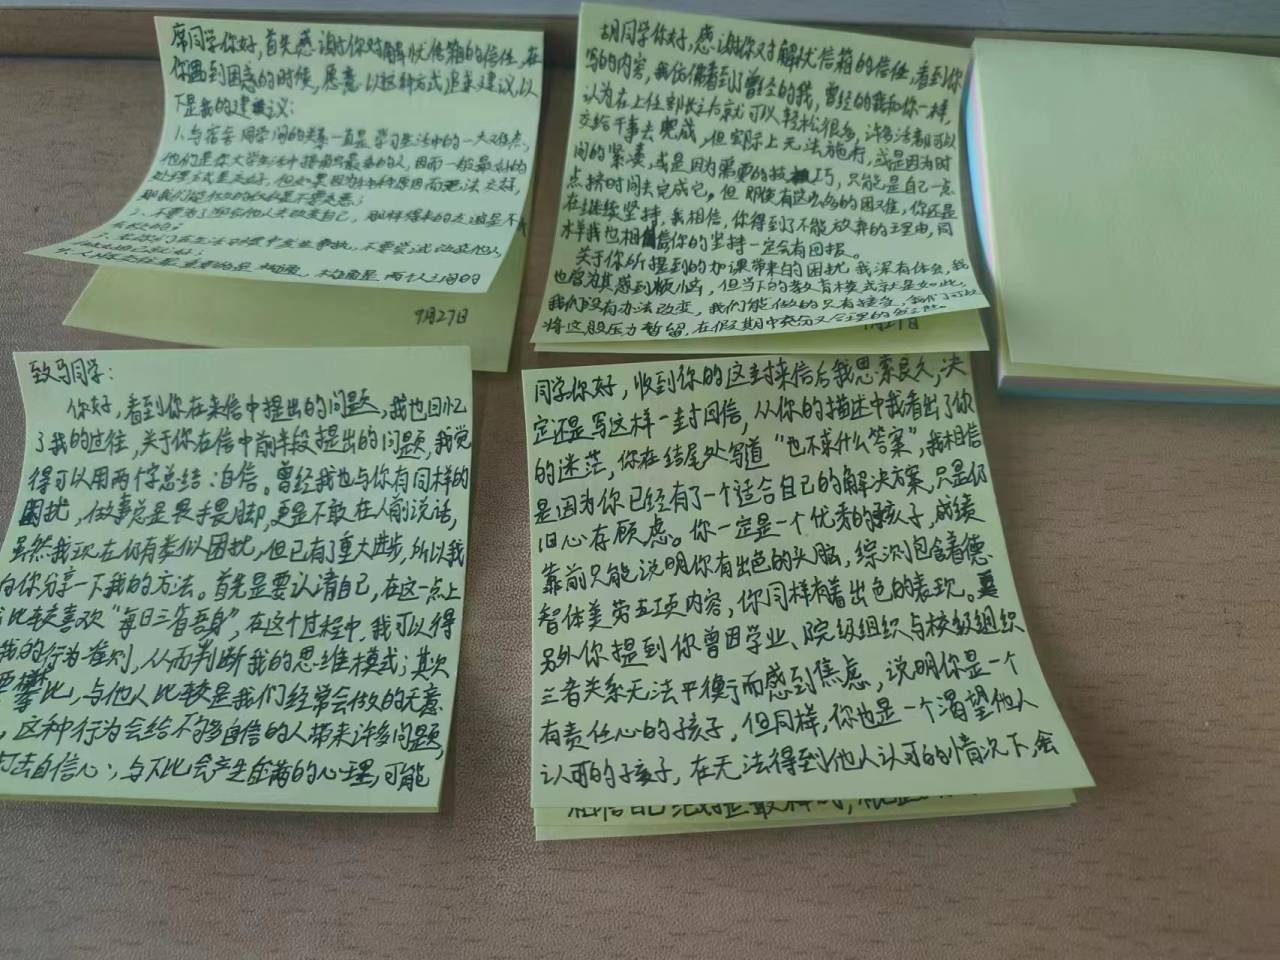 席同学你好,首先感谢你对解忧信箱的信任,在
你遇到困惑的时候,愿意以这种方式,追求建议,以
下是我的建议:
1.与宿舍同学间的关系一直是学习生活中的一大难点,
他们是在大学生活中接触最多的人,因而一般最好的
处理方式是交好,但如果因为种种原因而无法交好,
那我们能做的就是不要交恶;
2.不要为了迎合他人去改变自己,
长久的;
不要尝试
4.人际交往最重要的是沟通,沟通是两个人之间的
9月27日
胡同学你好,感谢你对解忧信箱的信任,看到你
写的内容,我仿佛看到了曾经的我,曾经的我和你一样,
认为在上任部长之后就可以轻松很多,许多活都可以
交给干事去完成,但实际上无法施行,或是因为时
间的紧凑,或是因为需要的技巧,只能是自己一点
点挤时间去完成它,但即使有这么多的困难,你还是
在继续坚持,我相信,你得到了不能放弃的理由,同
水平我也相信你的坚持一定会有回报。
关于你所提到的加课带来的困扰我深有体会,我
也曾为其感到烦恼,但当下的教育模式就是如此,
我们没有办法改变,我们能做的只有接受,
将这股压力暂留,在假期中充分又合理的
致马同学:
你好,看到你在来信中提出的问题,我也回忆
了我的过往,关于你在信中前半段提出的问题,我觉
得可以用两个字总结:自信。曾经我也与你有同样的
困扰,做事总是畏手畏脚,更是不敢在人前说话,
虽然我现在仍有类似困扰,但已有了重大进步,所以我
向你分享一下我的方法。首先是要认清自己,在这一点上
比较喜欢“每日三省吾身”,在这个过程中,我可以得
我的行为准则,从而判断我的思维模式;其次
攀比,与他人比较是我们经常会做的无意
,这种行为会给不够自信的人带来许多问题,
打击自信心,与下比会产生自满的心理,可能
同学你好,收到你的这封来信后我思索良久,决
定还是写这样一封回信,从你的描述中我看出了你
的迷茫,你在结尾处写道“也不求什么答案”,我相信
是因为你已经有了一个适合自己的解决方案,只是仍
旧心存顾虑。你一定是一个优秀的孩子,成绩
靠前只能说明你有出色的头脑,综测包含着德
智体美劳五项内容,你同样有着出色的表现。
另外你提到你曾因学业、院级组织与校级组织
三者关系无法平衡而感到焦虑,说明你是一个
有责任心的孩子,但同样,你也是一个渴望他人
认可的孩子,在无法得到他人认可的情况下,会
相信自己绝对是最棒的,